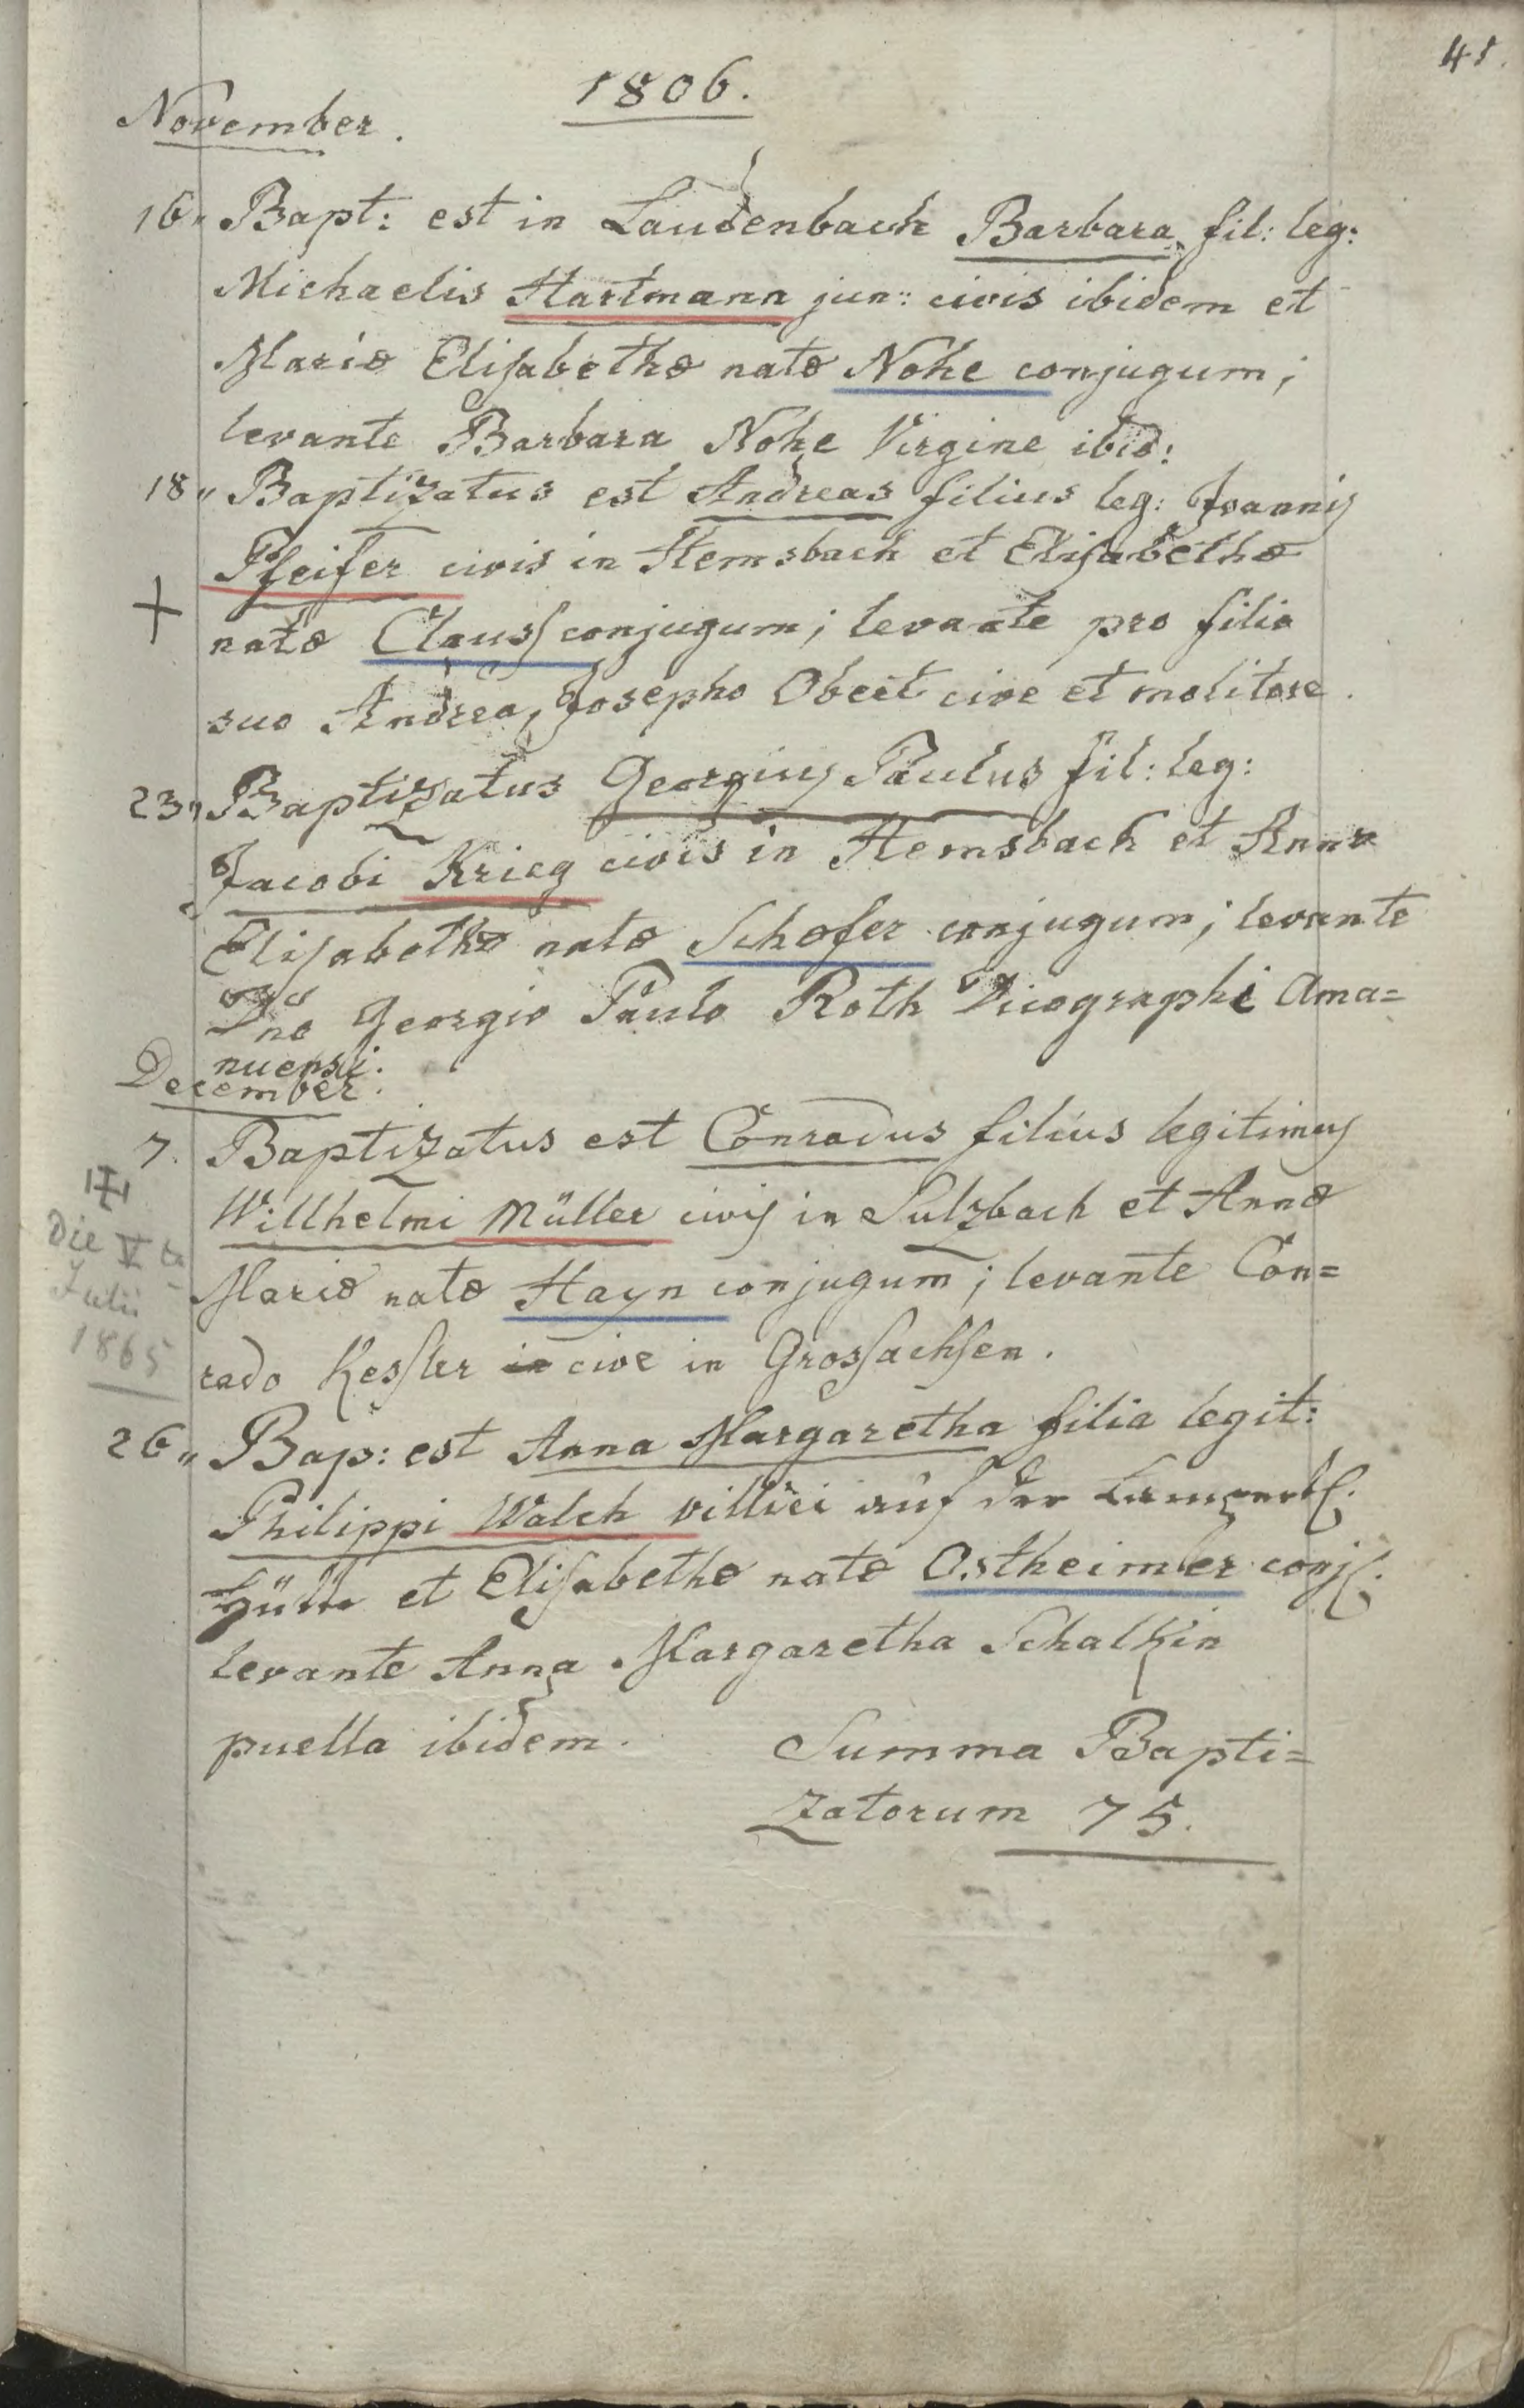 41.
1806.
November.
16„ Bapt: est in Laudenbach Barbara fil: leg:
Michaelis Hartmann jun: civis ibidem et
Mariæ Elisabethæ natæ Nohe conjugum;
levante Barbara Nohe Virgine ibid:
18„ Baptizatus est Andreas filius leg: Joannis
Pfeifer civis in Hemsbach et Elisabethæ
natæ Clauss conjugum; levante pro filio
suo Andrea, Josepho Obert cive et molitore.
23„ Baptizatus Georgius Paulus fil: leg:
Jacobi Krieg civis in Hemsbach et Annæ
Elisabethæ natæ Schæfer conjugum; levante
Dno Georgio Paulo Roth Vicographi Ama=
nuensi.
December.
7. Baptizatus est Conradus filius legitimus
Willhelmi Müller civis in Sulzbach et Annæ
Mariæ natæ Hayn conjugum; levante Con=
rado Kessler cive in Grossachsen.
Die V ta
Julii
1865
26„ Bap: est Anna Margaretha filia legit:
Philippi Walch villici auf der
Hütte et Elisabethæ natæ Ostheimer conj:
levante Anna Margaretha Schalkin
puella ibidem.
Summa Bapti=
zatorum 75.